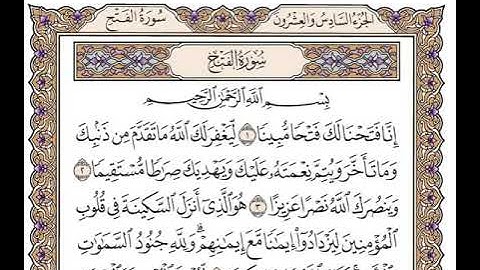 سُورَةُ الفَتْحِ
الجُزْءُ السَّادِسُ وَالعِشْرُونَ
سُورَةُ الفَتْحِ
بِسْمِ ٱللَّهِ ٱلرَّحْمَٰنِ ٱلرَّحِيمِ
إِنَّا فَتَحْنَا لَكَ فَتْحًا مُّبِينًا ١ لِّيَغْفِرَ لَكَ ٱللَّهُ مَا تَقَدَّمَ مِن ذَنۢبِكَ
وَمَا تَأَخَّرَ وَيُتِمَّ نِعْمَتَهُۥ عَلَيْكَ وَيَهْدِيَكَ صِرَٰطًا مُّسْتَقِيمًا ٢
وَيَنصُرَكَ ٱللَّهُ نَصْرًا عَزِيزًا ٣ هُوَ ٱلَّذِىٓ أَنزَلَ ٱلسَّكِينَةَ فِى قُلُوبِ
ٱلْمُؤْمِنِينَ لِيَزْدَادُوٓا۟ إِيمَٰنًا مَّعَ إِيمَٰنِهِمْ ۗ وَلِلَّهِ جُنُودُ ٱلسَّمَٰوَٰتِ